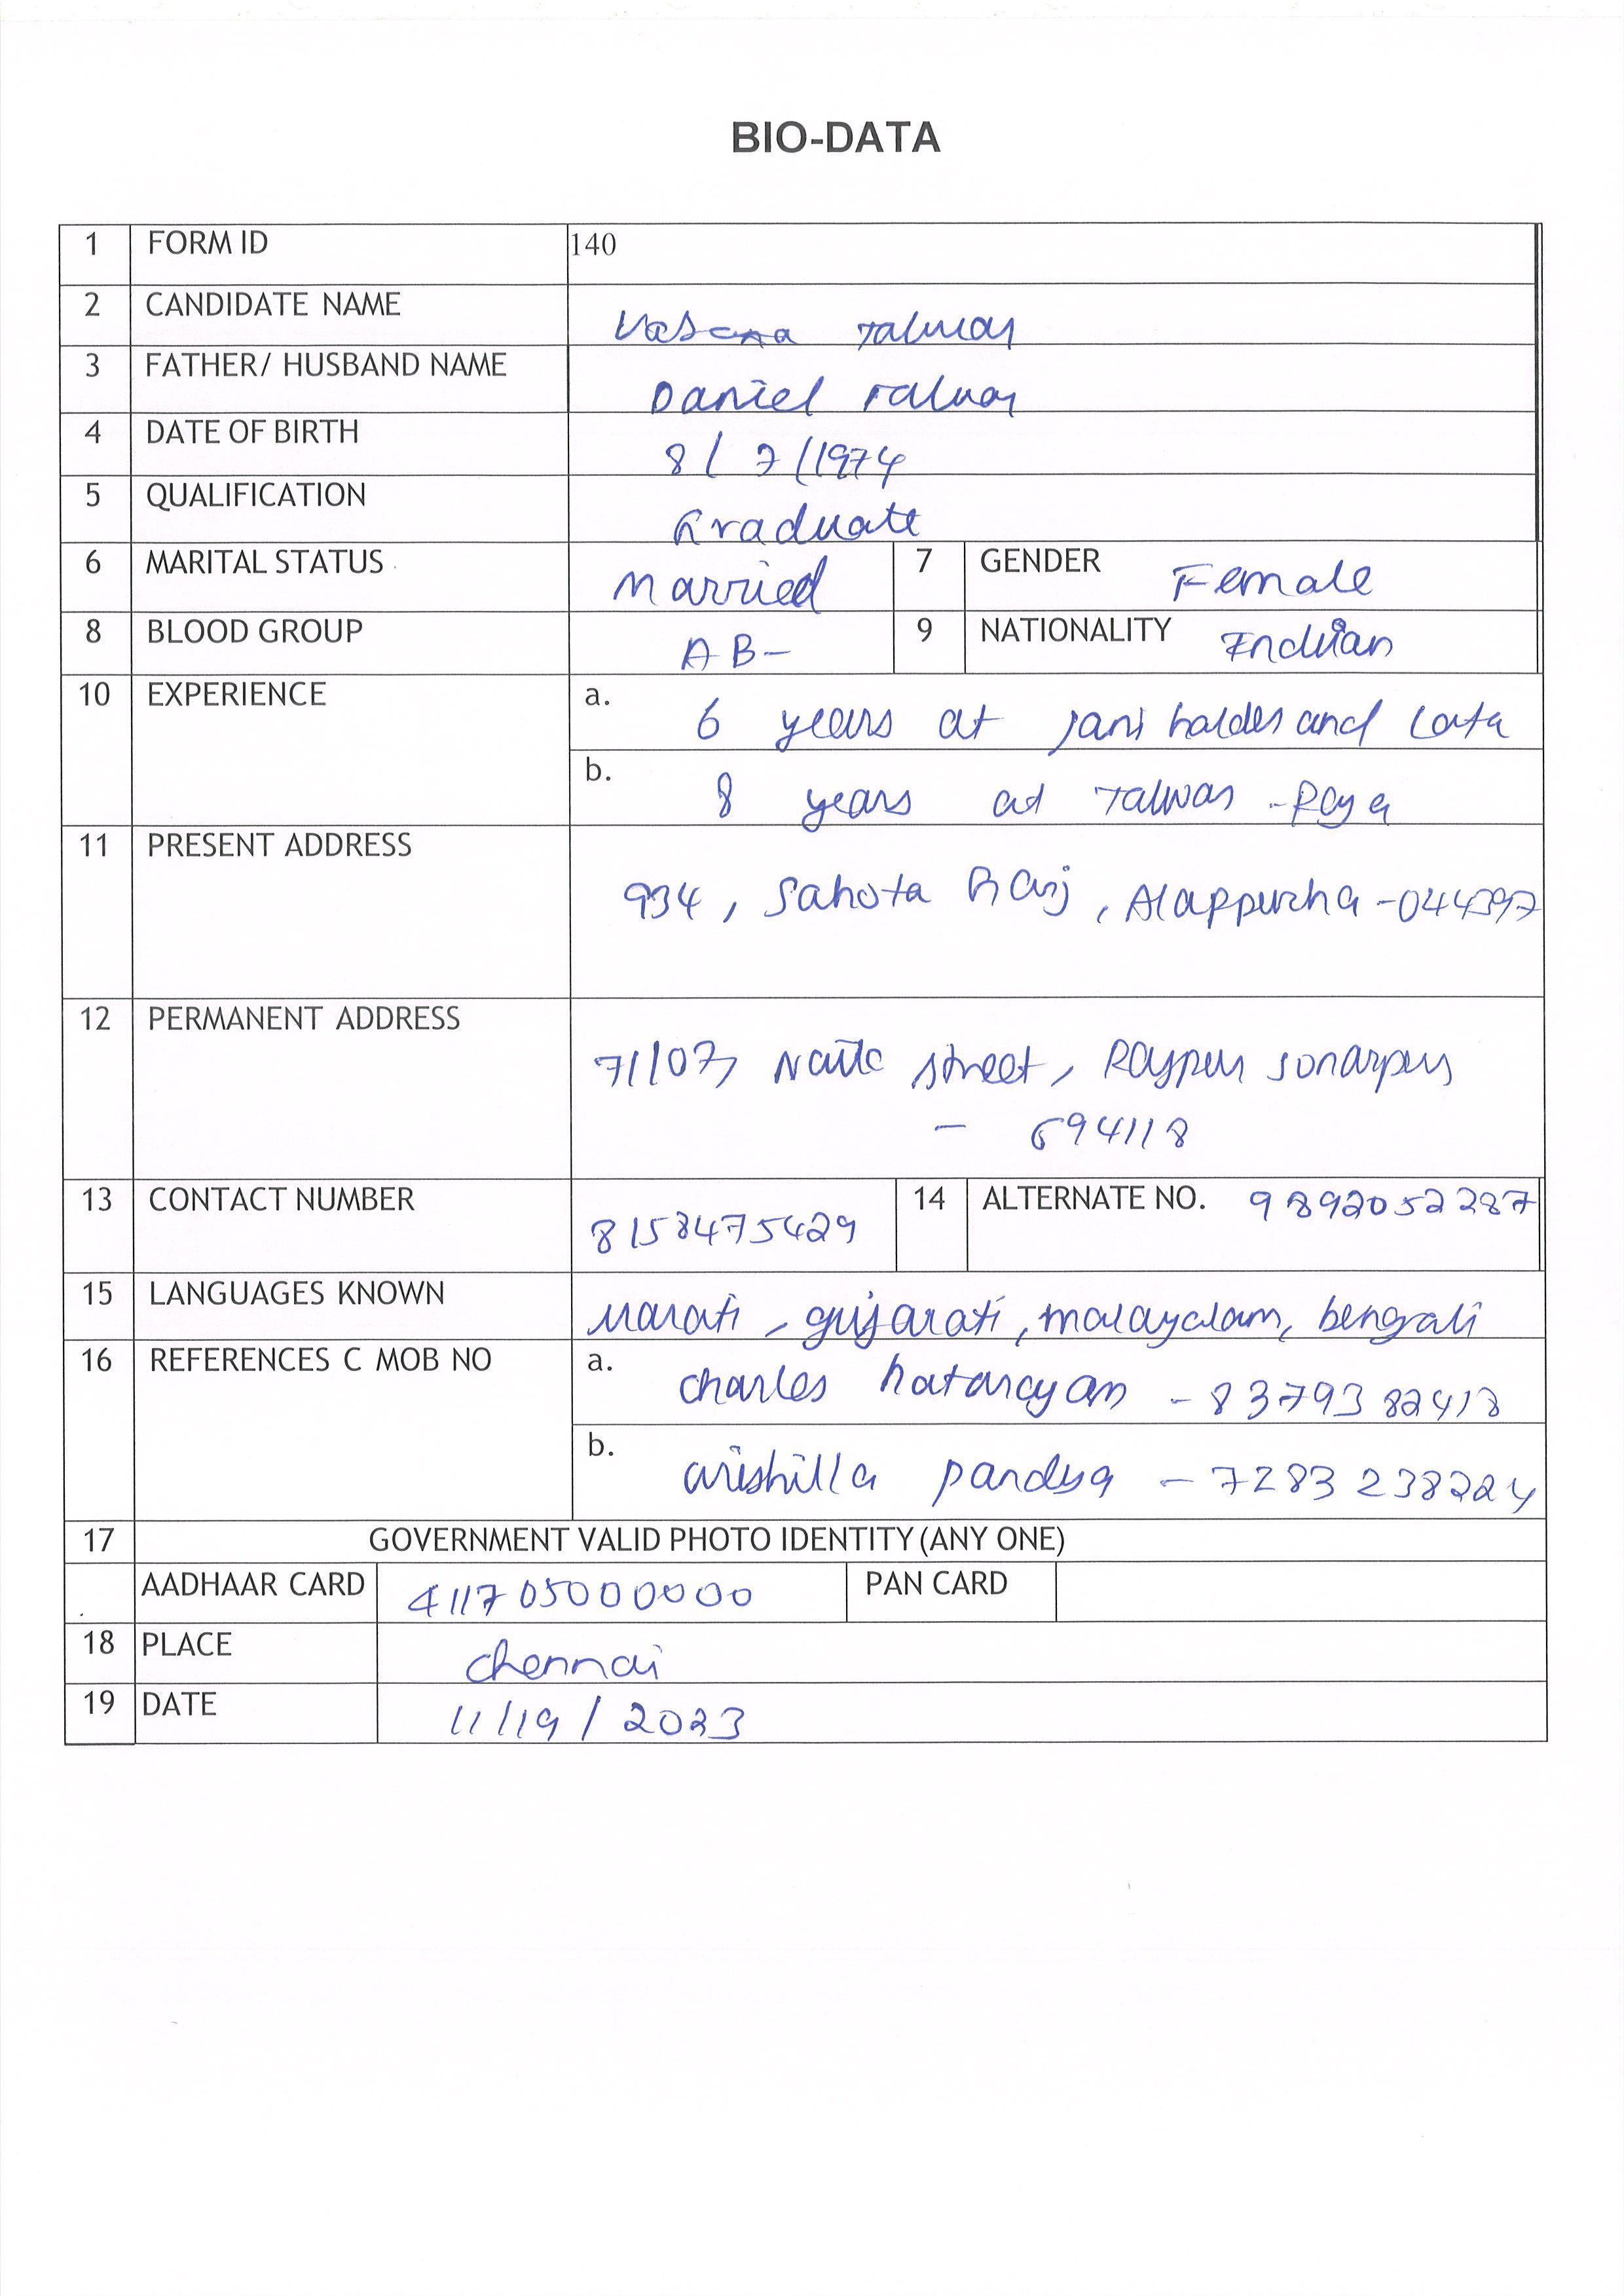 BIO-DATA
1 FORM ID 140
2 CANDIDATE NAME Talwar
3 FATHER/ HUSBAND NAME Daniel Talwar
4 DATE OF BIRTH 8 / 7 /1974
5 QUALIFICATION Graduate
6 MARITAL STATUS Married 7 GENDER Female
8 BLOOD GROUP AB- 9 NATIONALITY Indian
10 EXPERIENCE a. 6 years at jani halder and Lata
b. 8 years at Talwar -
11 PRESENT ADDRESS 934, Sahota , Alappuzha -044397
12 PERMANENT ADDRESS 71/07, street, Rajpur sonarpur
- 694118
13 CONTACT NUMBER 8158475429 14 ALTERNATE NO. 9892052287
15 LANGUAGES KNOWN Marati, gujarati, malayalam, bengali
16 REFERENCES C MOB NO a. charles natarayan - 8379382418
b. pandya - 7283238224
17 GOVERNMENT VALID PHOTO IDENTITY (ANY ONE)
AADHAAR CARD 411705000000 PAN CARD
18 PLACE chennai
19 DATE 11/19/2023